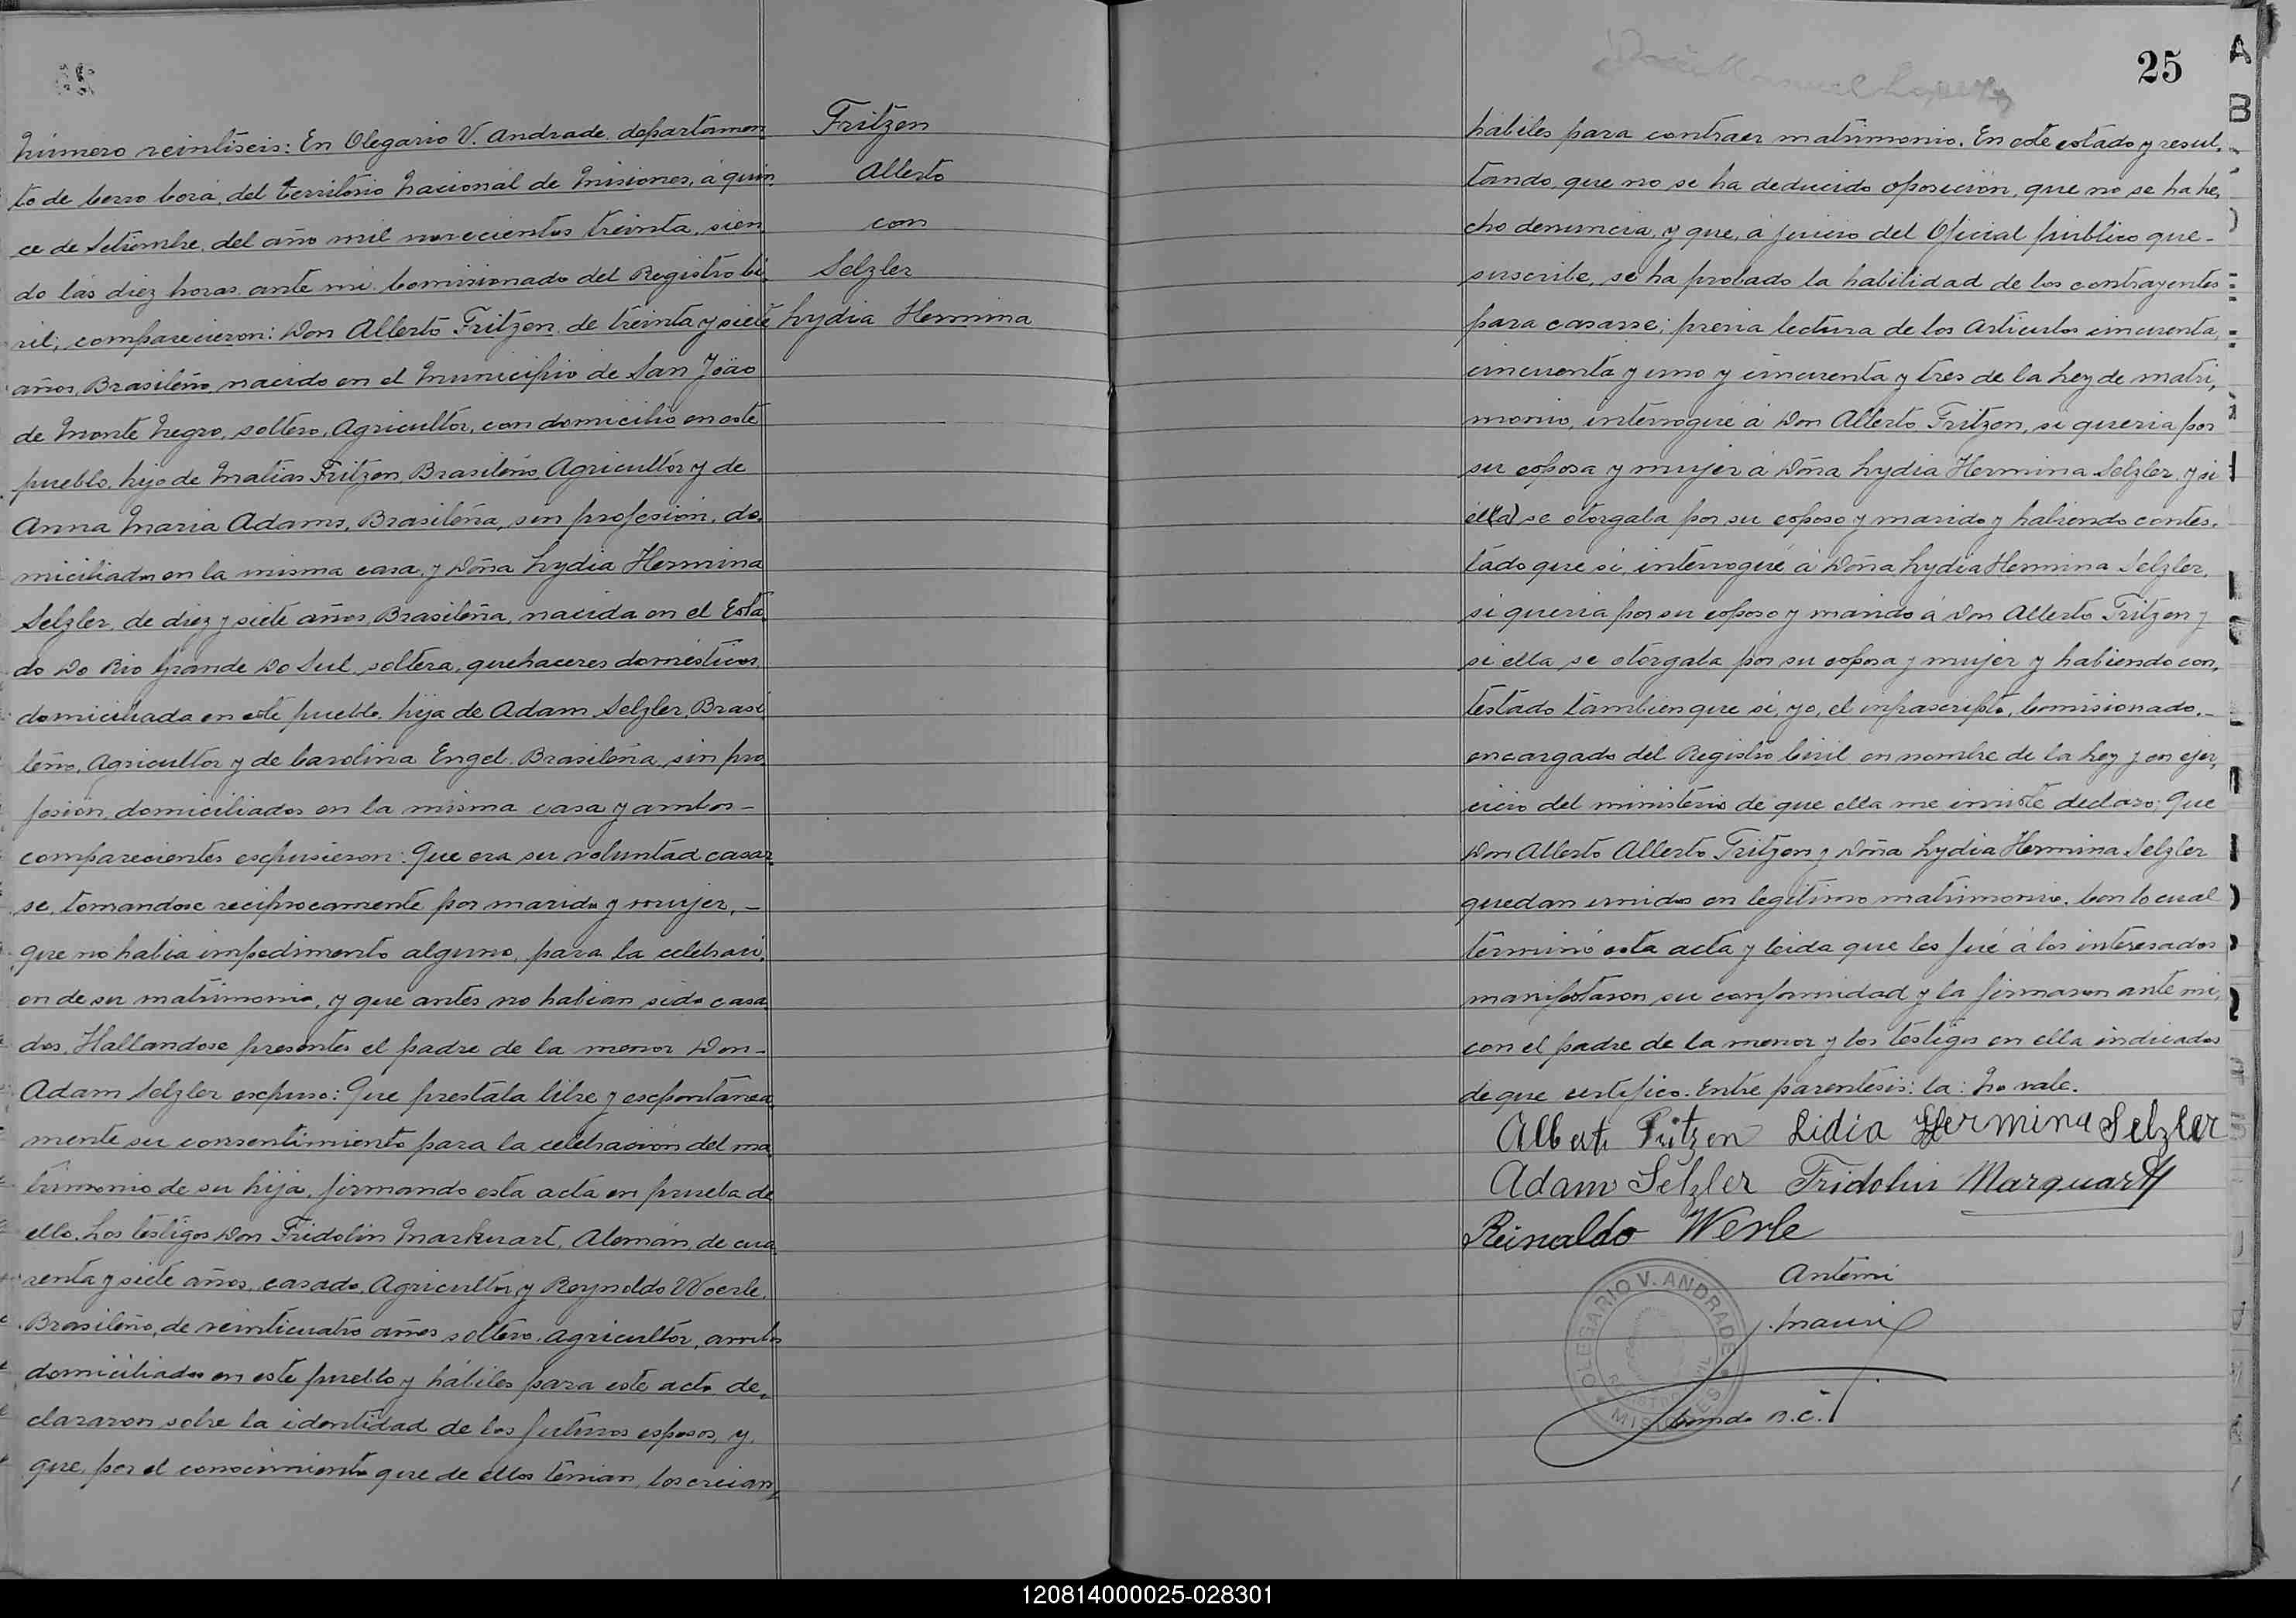 Número veintiseis: En Olegario V. Andrade, departamen-
to de Cerro Corá, del territorio Nacional de Misiones, á quin-
ce de Setiembre, del año mil novecientos treinta, sien-
do las diez horas, ante mi Comisionado del Registro Ci-
vil; comparecieron: Don Alberto Fritzen, de treinta y siete
años, Brasileño, nacido en el Municipio de San João
de Monte Negro, soltero, Agricultor, con domicilio en este
pueblo, hijo de Matias Fritzen, Brasileño, Agricultor y de
Anna Maria Adams, Brasileña, sin profesion, do-
miciliados en la misma casa, y Doña Lydia Hermina
Selzler, de diez y siete años, Brasileña, nacida en el Esta-
do Do Rio Grande Do Sul, soltera, quehaceres domésticos,
domiciliada en este pueblo, hija de Adam Selzler, Brasi-
leño, Agricultor y de Carolina Engel, Brasileña, sin pro-
fesión, domiciliados en la misma casa y ambos-
comparecientes espusieron: Que era su voluntad casar-
se, tomandose reciprocamente por marido y mujer, -
que no habia impedimento alguno, para la celebraci-
on de su matrimonio, y que antes no habian sido casa-
dos. Hallandose presentes el padre de la menor Don-
Adam Selzler espuso: Que prestaba libre y espontanea-
mente su consentimiento para la celebración del ma-
trimonio de su hija, firmando esta acta en prueba de
ello. Los testigos Don Fridolin Markuart, Alemán, de cua-
renta y siete años, casado, Agricultor, y Reynoldo Woerle,
Brasileño, de veinticuatro años soltero, agricultor, ambos
domiciliados en este pueblo y hábiles para este acto, de-
clararon sobre la identidad de los futuros esposos, y,
que, por el conocimiento que de ellos tenian, los creian
Fritzen
Alberto
con
Selzler
Lydia Hermina
25
A
B
hábiles para contraer matrimonio. En este estado y resul-
tando, que no se ha deducido oposición, que no se ha he-
cho denuncia, y que, á juicio del Oficial público que-
suscribe, se ha probado la habilidad de los contrayentes
para casarse; previa lectura de los Articulos cincuenta,
cincuenta y uno y cincuenta y tres de la Ley de matri-
monio, interrogué á Don Alberto Fritzen, si queria por
su esposa y mujer á Doña Lydia Hermina Selzler, y si
él(la) se otorgaba por su esposo y marido y habiendo contes-
tado que si, interrogué á Doña Lydia Hermina Selzler,
si queria por su esposo y marido á Don Alberto Fritzen y
si ella se otorgaba por su esposa y mujer y habiendo con-
testado tambien que si, yo, el infrascripto, Comisionado.-
encargado del Registro Civil en nombre de la Ley y en ejer-
cicio del ministerio de que ella me inviste declaro; Que
Don Alberto Alberto Fritzen y Doña Lydia Hermina Selzler
quedan unidos en legitimo matrimonio. Con lo cual
terminó esta acta y leida que les fué á los interesados
manifestaron su conformidad y la firmaron ante mi,
con el padre de la menor y los testigos en ella indicados
de que certifico. Entre parentesis: la: No vale.
Alberto Fritzen Lidia Hermina Selzler
Adam Selzler Fridolin Marquart
Reinaldo Werle
Ante mi
OLEGARIO V. ANDRADE
REGISTRO CIVIL
MISIONES
R.C.
120814000025-028301